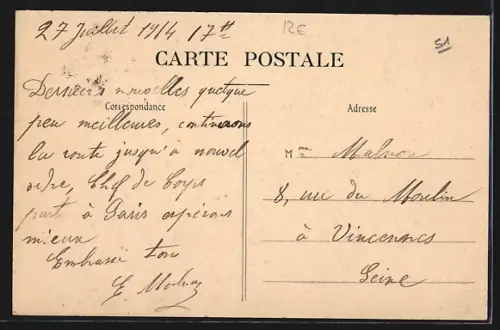 27 Juillet 1914 17H
RE
51
CARTE POSTALE
Correspondance
Adresse
Dernières nouvelles quelque
peu meilleures, continuons
la route jusqu'à nouvel
ordre, Chef de Corps
parti à Paris espérons
mieux
Embrasse tous
E.
Mme
8, rue du Moulin
à Vincennes
Seine